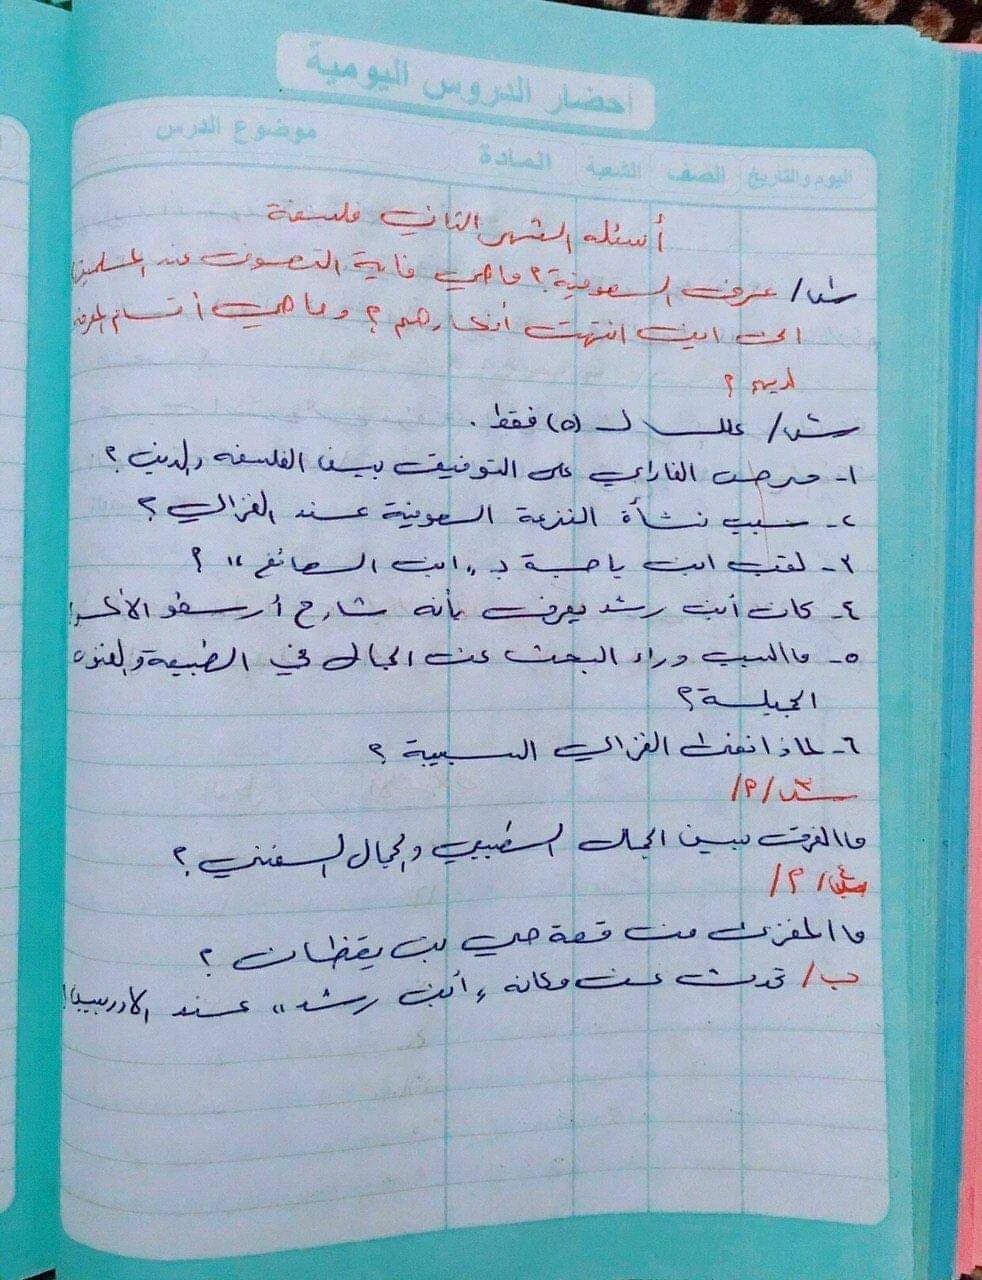 احضار الدروس اليومية
اليوم والتاريخ الصف الشعبة المادة موضوع الدرس
أسئله الشهر الثاني فلسفة
س١/ عرف الصوفية؟ ماهي غاية التصوف عند المسلمين
الى اين انتهت أفكارهم؟ وماهي أقسام المعرفة
لديهم؟
س٢/ علل لـ (٥) فقط.
١- حرص الفارابي على التوفيق بين الفلسفه والدين؟
٢- سبب نشأة النزعة الصوفية عند الغزالي؟
٣- لقب ابن باجة بـ "ابن الصائغ"؟
٤- كان أبن رشد يعرف بأنه شارح أرسطو الأكبر
٥- ماالسبب وراء البحث عن الجمال في الطبيعة والفنون
الجميلة؟
٦- لماذا نقض الغزالي السببية؟
س٣/ ٢/
ماالفرق بين الجمال الطبيعي والجمال الفني؟
س٤/ ٢/
ماالمغزى من قصة حي بن يقظان؟
ب/ تحدث عن مكانه "أبن رشد" عند الاوربيين